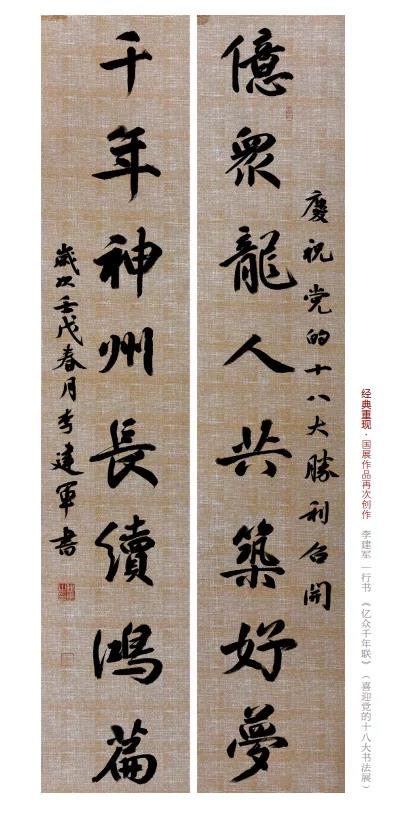 经典重现·国展作品再次创作 李建军—行书 《亿众千年联》（喜迎党的十八大书法展）
慶祝党的十八大勝利召開
億衆龍人共築好夢
千年神州長續鴻篇
歲次壬戊春月李建軍書